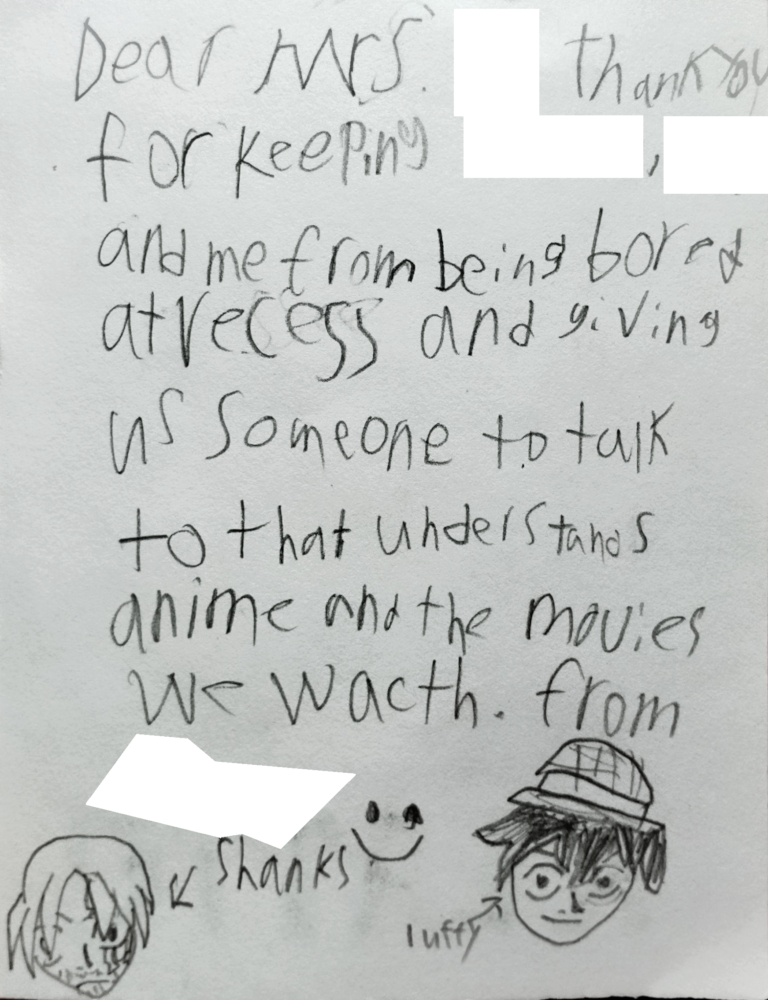 Dear Mrs. thank you
for keeping ,
and me from being bored
at recess and giving
us someone to talk
to that understands
anime and the movies
we wacth. from
shanks
luffy